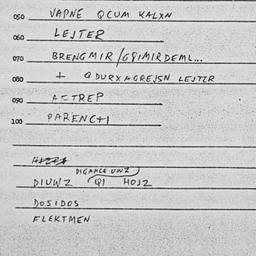 050 VAPNE QCUM KALXN
060 LEJTER
070 BRENGMIR/GPIMIRDEML...
080 + QDURXAGREJSN LEJTZR
090
100 PARENC+I
DIGANLE UWZ
DIUWZ QI HOJZ
DOSIDOS
FLEKTMEN